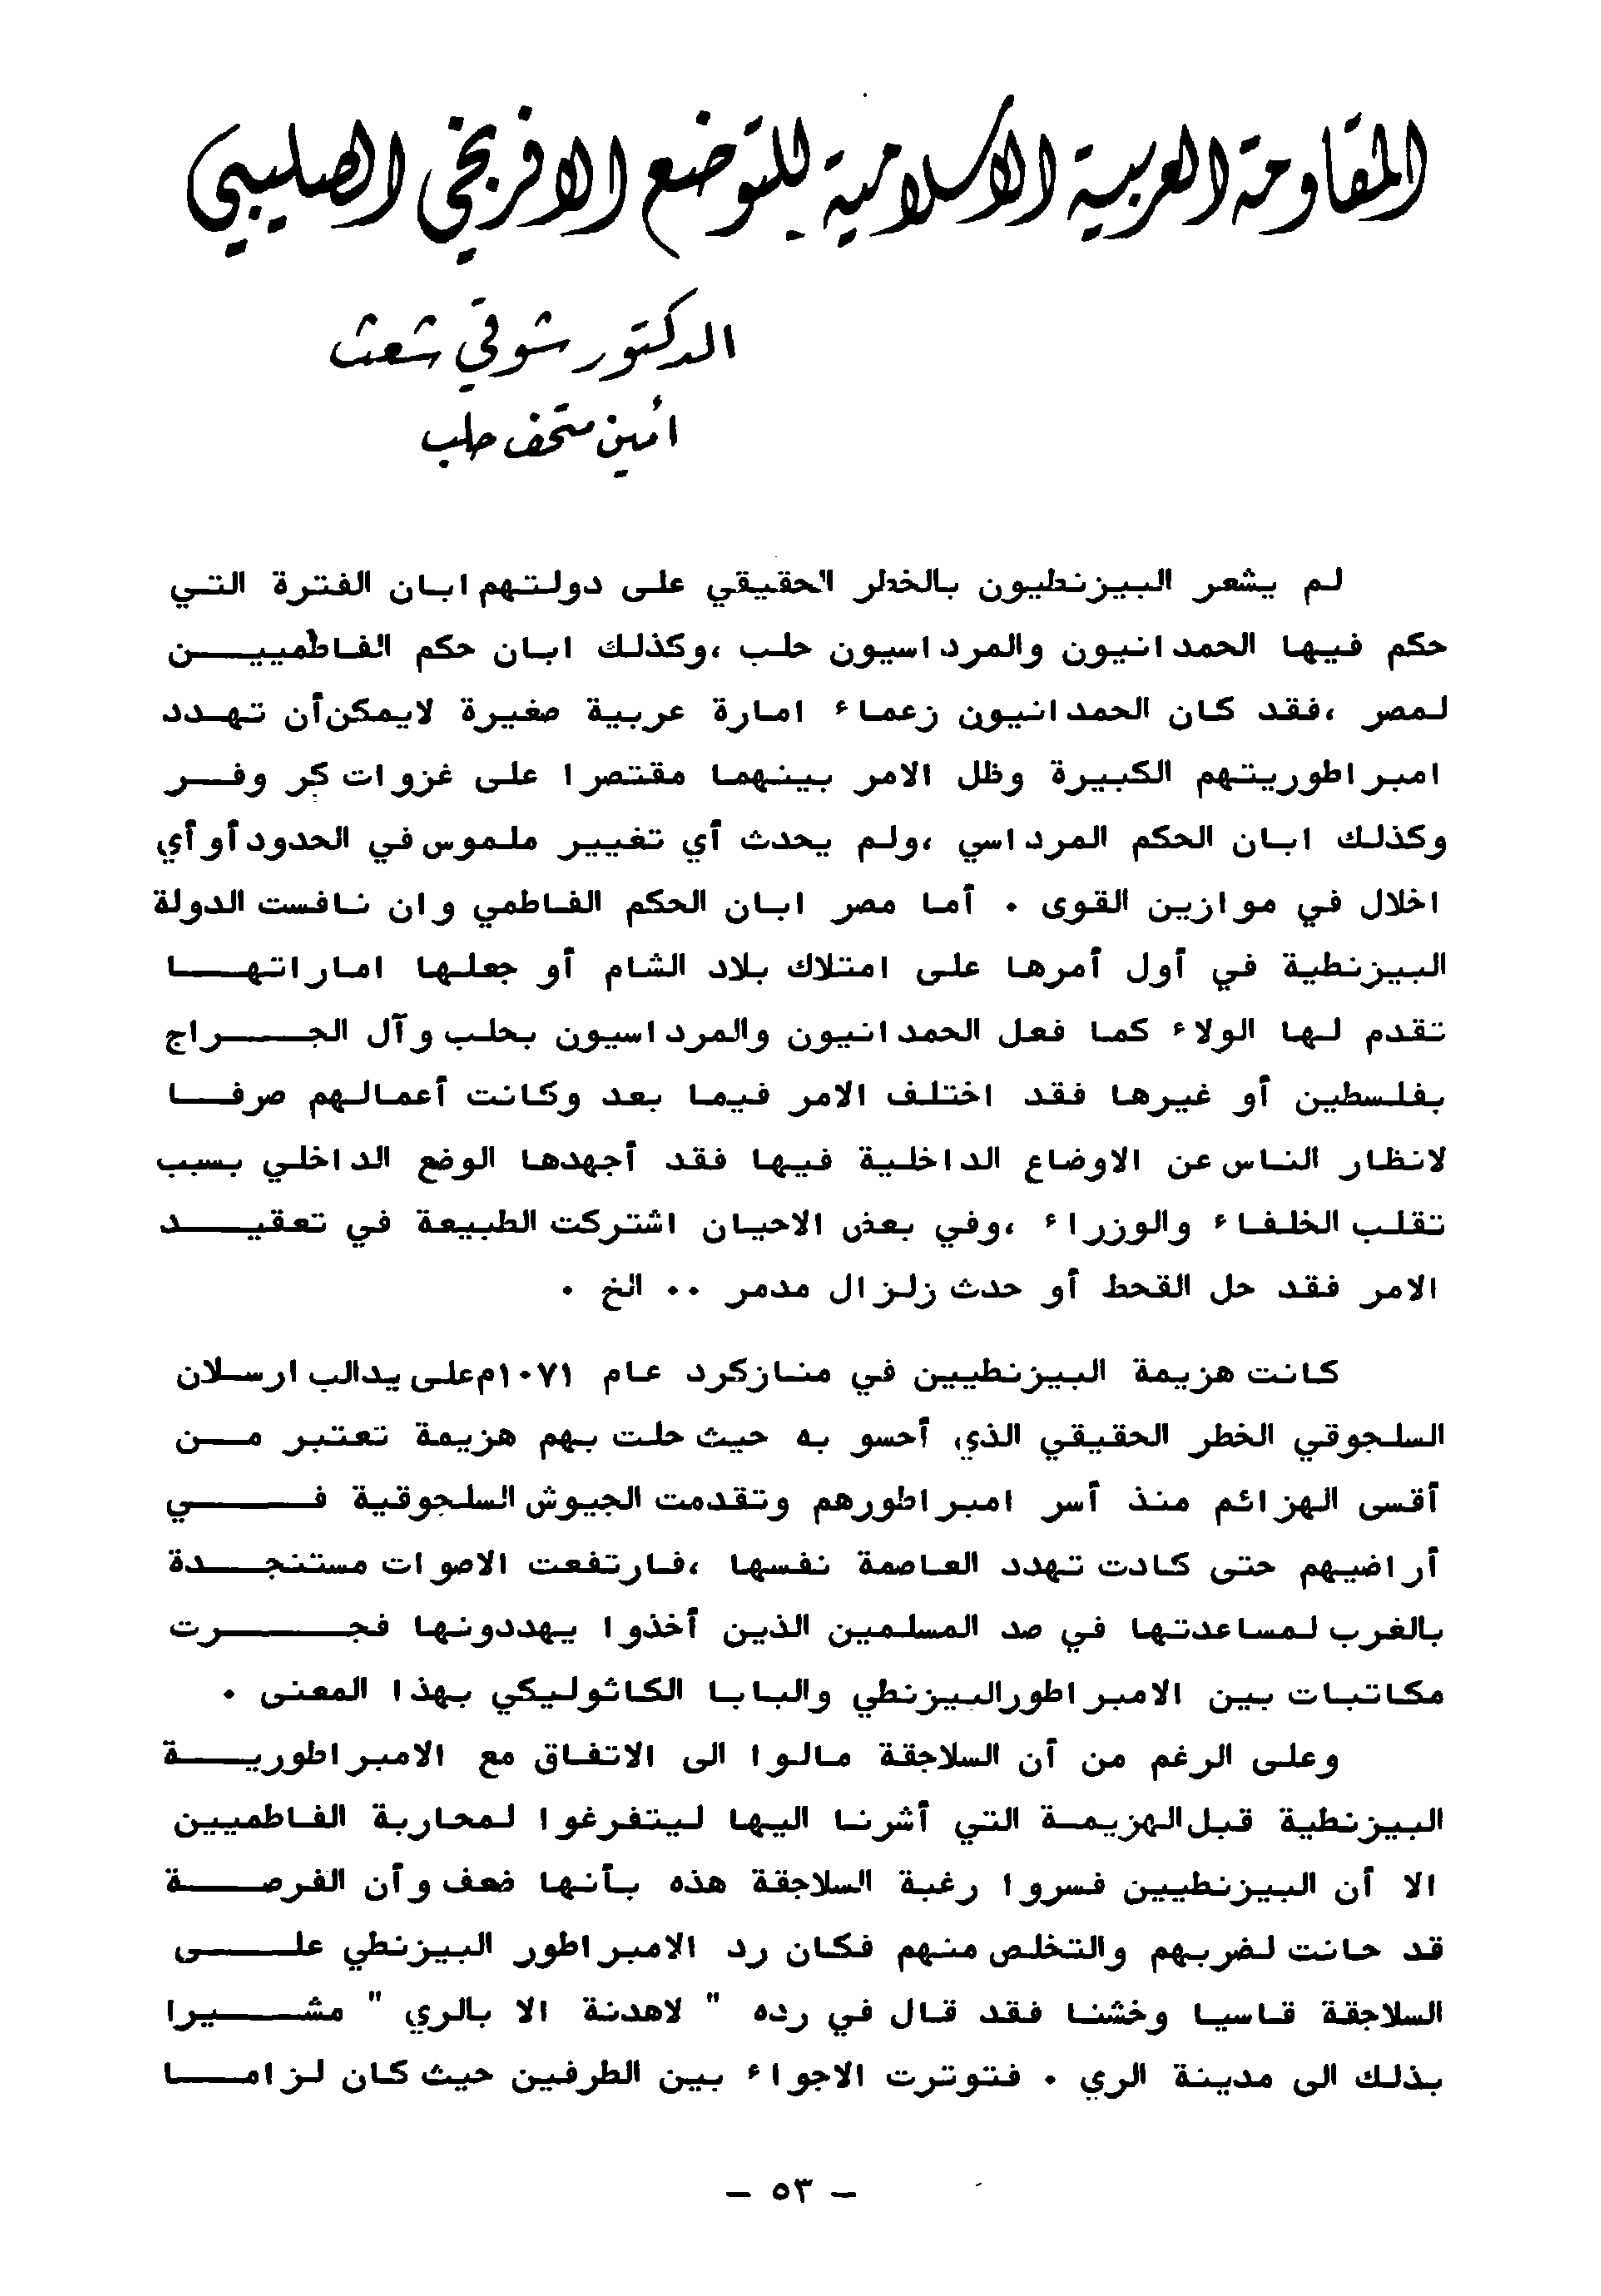 المقاومة العربية الاسلامية للتوضع الافرنجي الصليبي
الدكتور شوقي شعث
أمين متحف حلب
لم يشعر البيزنطيون بالخطر الحقيقي على دولتهم ابان الفترة التي
حكم فيها الحمدانيون والمرداسيون حلب ،وكذلك ابان حكم الفاطميين
لمصر ،فقد كان الحمدانيون زعماء امارة عربية صغيرة لايمكن أن تهدد
امبراطوريتهم الكبيرة وظل الامر بينهما مقتصرا على غزوات كر وفر
وكذلك ابان الحكم المرداسي ،ولم يحدث أي تغيير ملموس في الحدود أو أي
اخلال في موازين القوى . أما مصر ابان الحكم الفاطمي وان نافست الدولة
البيزنطية في أول أمرها على امتلاك بلاد الشام أو جعلها اماراتها
تقدم لها الولاء كما فعل الحمدانيون والمرداسيون بحلب وآل الجراج
بفلسطين أو غيرها فقد اختلف الامر فيما بعد وكانت أعمالهم صرفا
لانظار الناس عن الاوضاع الداخلية فيها فقد أجهدها الوضع الداخلي بسبب
تقلب الخلفاء والوزراء ،وفي بعض الاحيان اشتركت الطبيعة في تعقيد
الامر فقد حل القحط أو حدث زلزال مدمر .. الخ .
كانت هزيمة البيزنطيين في منازكرد عام ١٠٧١م على يد الب ارسلان
السلجوقي الخطر الحقيقي الذي أحسو به حيث حلت بهم هزيمة تعتبر من
أقسى الهزائم منذ أسر امبراطورهم وتقدمت الجيوش السلجوقية في
أراضيهم حتى كادت تهدد العاصمة نفسها ،فارتفعت الاصوات مستنجدة
بالغرب لمساعدتها في صد المسلمين الذين أخذوا يهددونها فجرت
مكاتبات بين الامبراطور البيزنطي والبابا الكاثوليكي بهذا المعنى .
وعلى الرغم من أن السلاجقة مالوا الى الاتفاق مع الامبراطورية
البيزنطية قبل الهزيمة التي أشرنا اليها ليتفرغوا لمحاربة الفاطميين
الا أن البيزنطيين فسروا رغبة السلاجقة هذه بأنها ضعف وأن الفرصة
قد حانت لضربهم والتخلص منهم فكان رد الامبراطور البيزنطي على
السلاجقة قاسيا وخشنا فقد قال في رده " لاهدنة الا بالري " مشيرا
بذلك الى مدينة الري . فتوترت الاجواء بين الطرفين حيث كان لزاما
- ٥٣ -